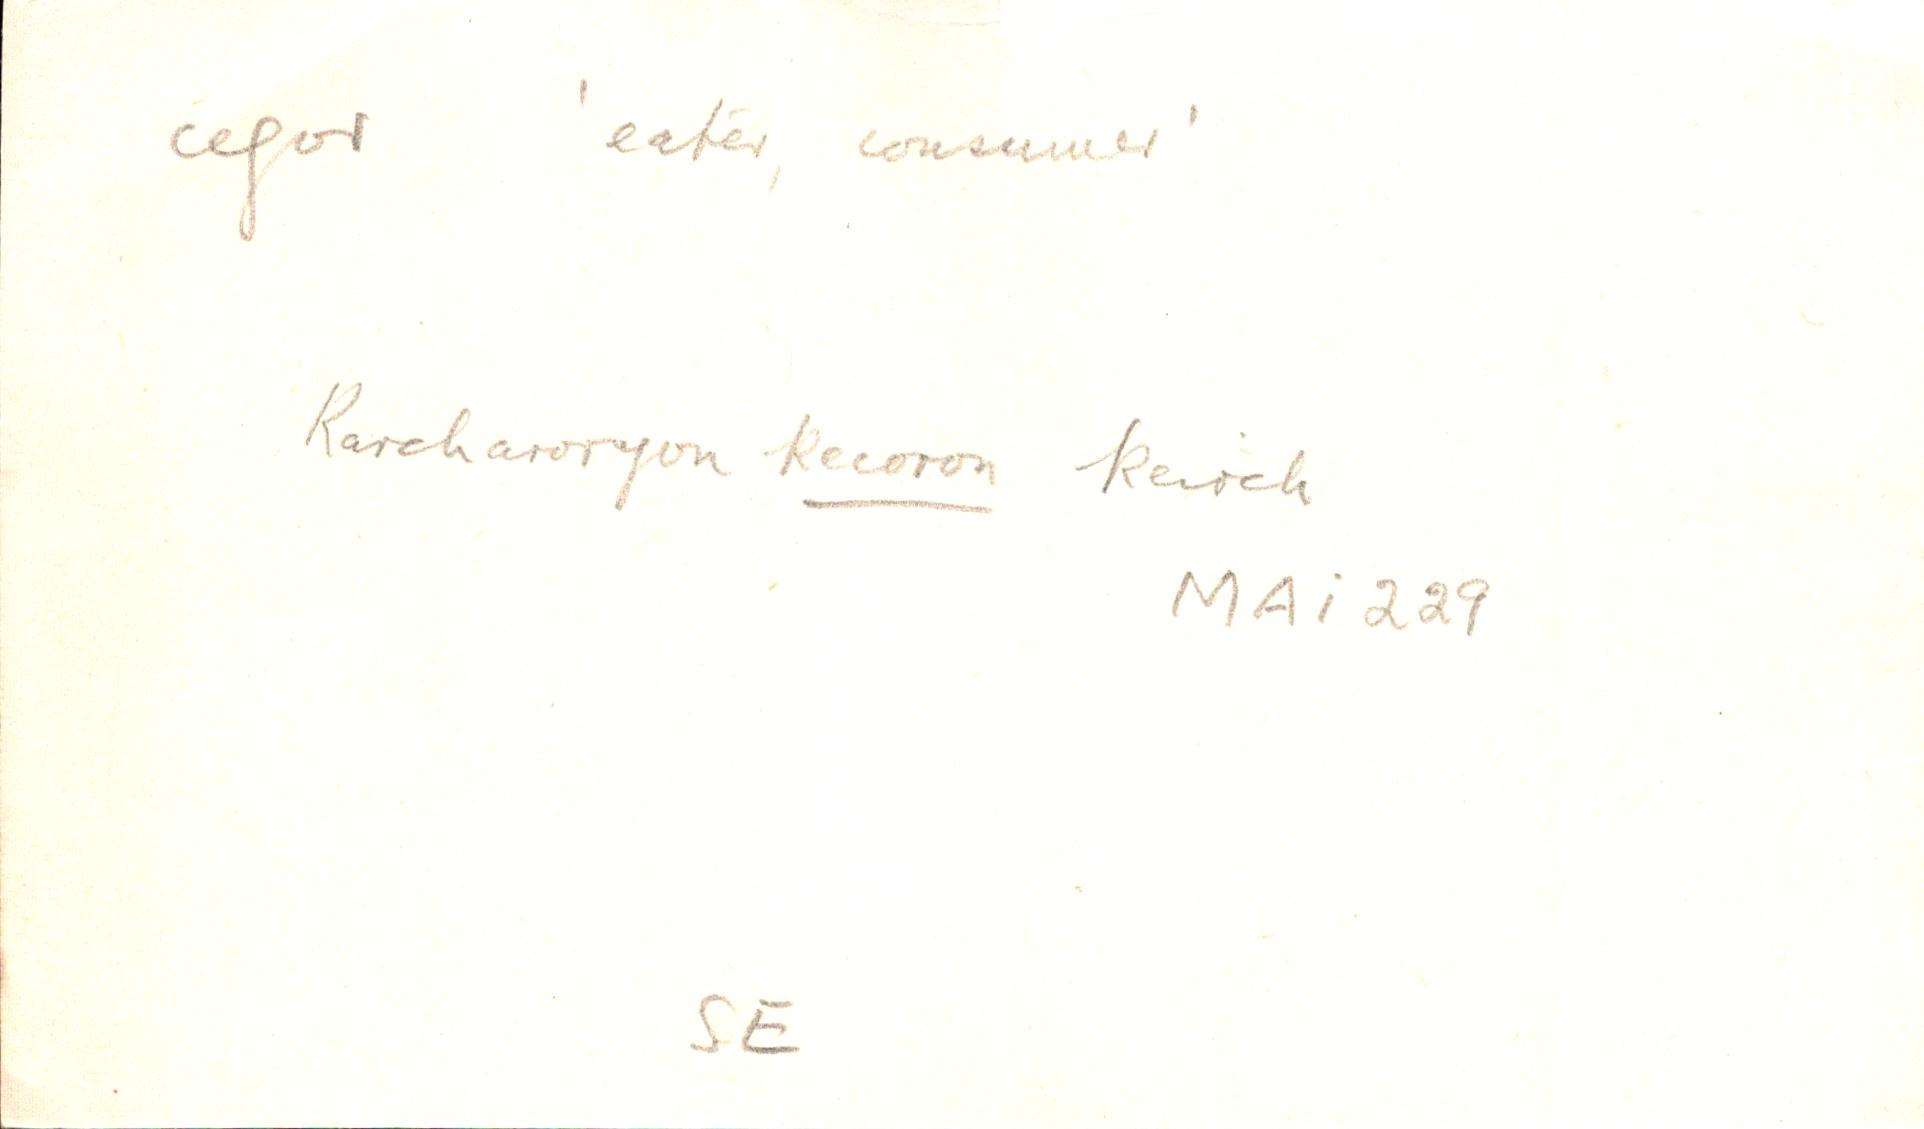 cegor 'eater, consumer'
Karcharoryon kecoron keirch
MAi 229
SE